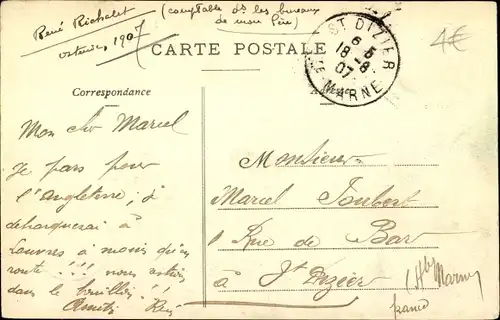 René Richalet
1907
(comptable ds les bureaux
de mon Père)
4€
CARTE POSTALE
ST DIZIER
6 5
18 - 8
07
HTE MARNE
Correspondance
Mon cher Marcel
Je pars pour
l'angleterre ; 
débarquerai à
Louvres à moins qu'en
route !!! nous
dans le bouillon !!
Amitiés René
Monsieur
Marcel Joubert
1 Rue de Bar
à St Dizier
(Hte Marne)
france